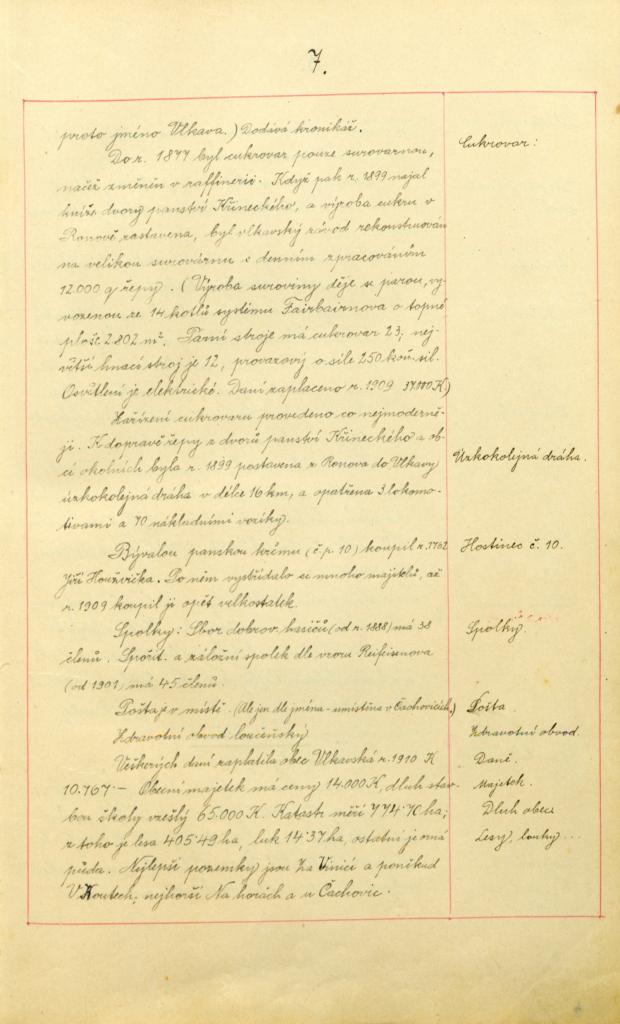 7.
proto jméno Vlkava.) Dodává kronikář.
Cukrovar:
Do r. 1877 byl cukrovar pouze surovarnou,
načež změněn v raffinerii. Když pak r. 1899 najal
kníže dvory panství Křineckého, a výroba cukru v
Ronově zastavena, byl vlkavský závod rekonstruován
na velikou surovárnu s denním zpracováním
12.000 q řepy. (Výroba suroviny děje se parou, vy-
vozenou ze 14 kotlů systému Fairbairnova o topné
ploše 2.802 m². Parní stroje má cukrovar 23; nej-
větší hnací stroj je 12, provazový o síle 250 koň. sil.
Osvětlení je elektrické. Daní zaplaceno r. 1909 37.000 K)
Zařízení cukrovaru provedeno co nejmoderně-
ji. K dopravě řepy z dvorů panství Křineckého a ob-
cí okolních byla r. 1899 postavena z Ronova do Vlkavy
Úzkokolejná dráha.
úzkokolejná dráha v délce 16 km, a opatřena 3 lokomo-
tivami a 70 nákladními vozíky.
Bývalou panskou krčmu (č. p. 10) koupil r. 1762
Hostinec č. 10.
Jiří Houžvička. Po něm vystřídalo se mnoho majitelů, až
r. 1909 koupil ji opět velkostatek.
Spolky: Sbor dobrov. hasičů (od r. 1888) má 38
Spolky.
členů. Spořit. a záložní spolek dle vzoru Reifeisenova
(od 1901) má 45 členů.
Pošta je v místě. (Ale jen dle jména - umístěna v Čachovicích.)
Pošta.
Zdravotní obvod loučeňský
Zdravotní obvod.
Veškerých daní zaplatila obec Vlkavská r. 1910 K
Daně.
10.767 — Obecní majetek má ceny 14.000 K, dluh stav-
Majetek.
bou školy vzešlý 65.000 K. Katastr měří 774·70 ha;
Dluh obec.
z toho je lesa 405·49 ha, luk 14·37 ha, ostatní je orná
Lesy, louky ...
půda. Nejlepší pozemky jsou Za Vinicí a poněkud
V Koutech; nejhorší Na horách a u Čachovic.